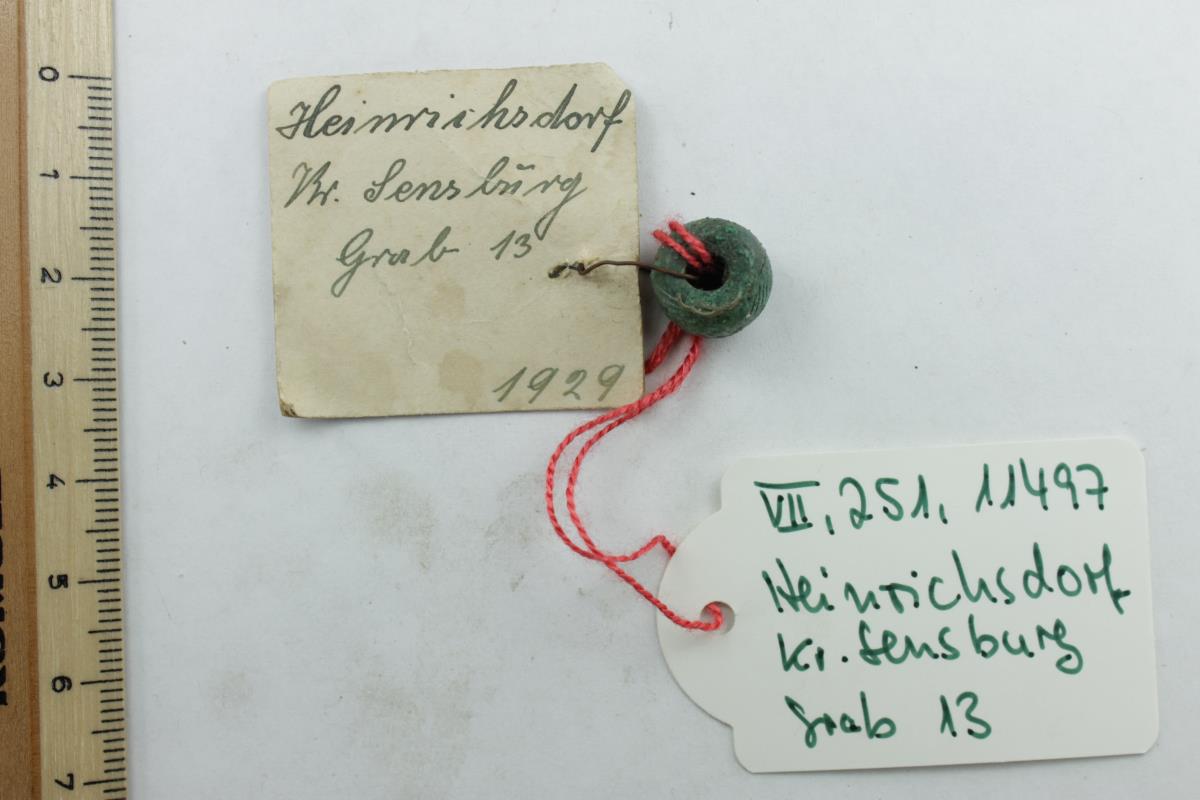 Heinrichsdorf
Kr. Sensbŭrg
Grab 13
1929
VII, 251, 11497
Heinrichsdorf
Kr. Sensburg
Grab 13
0
1
2
3
4
5
6
7